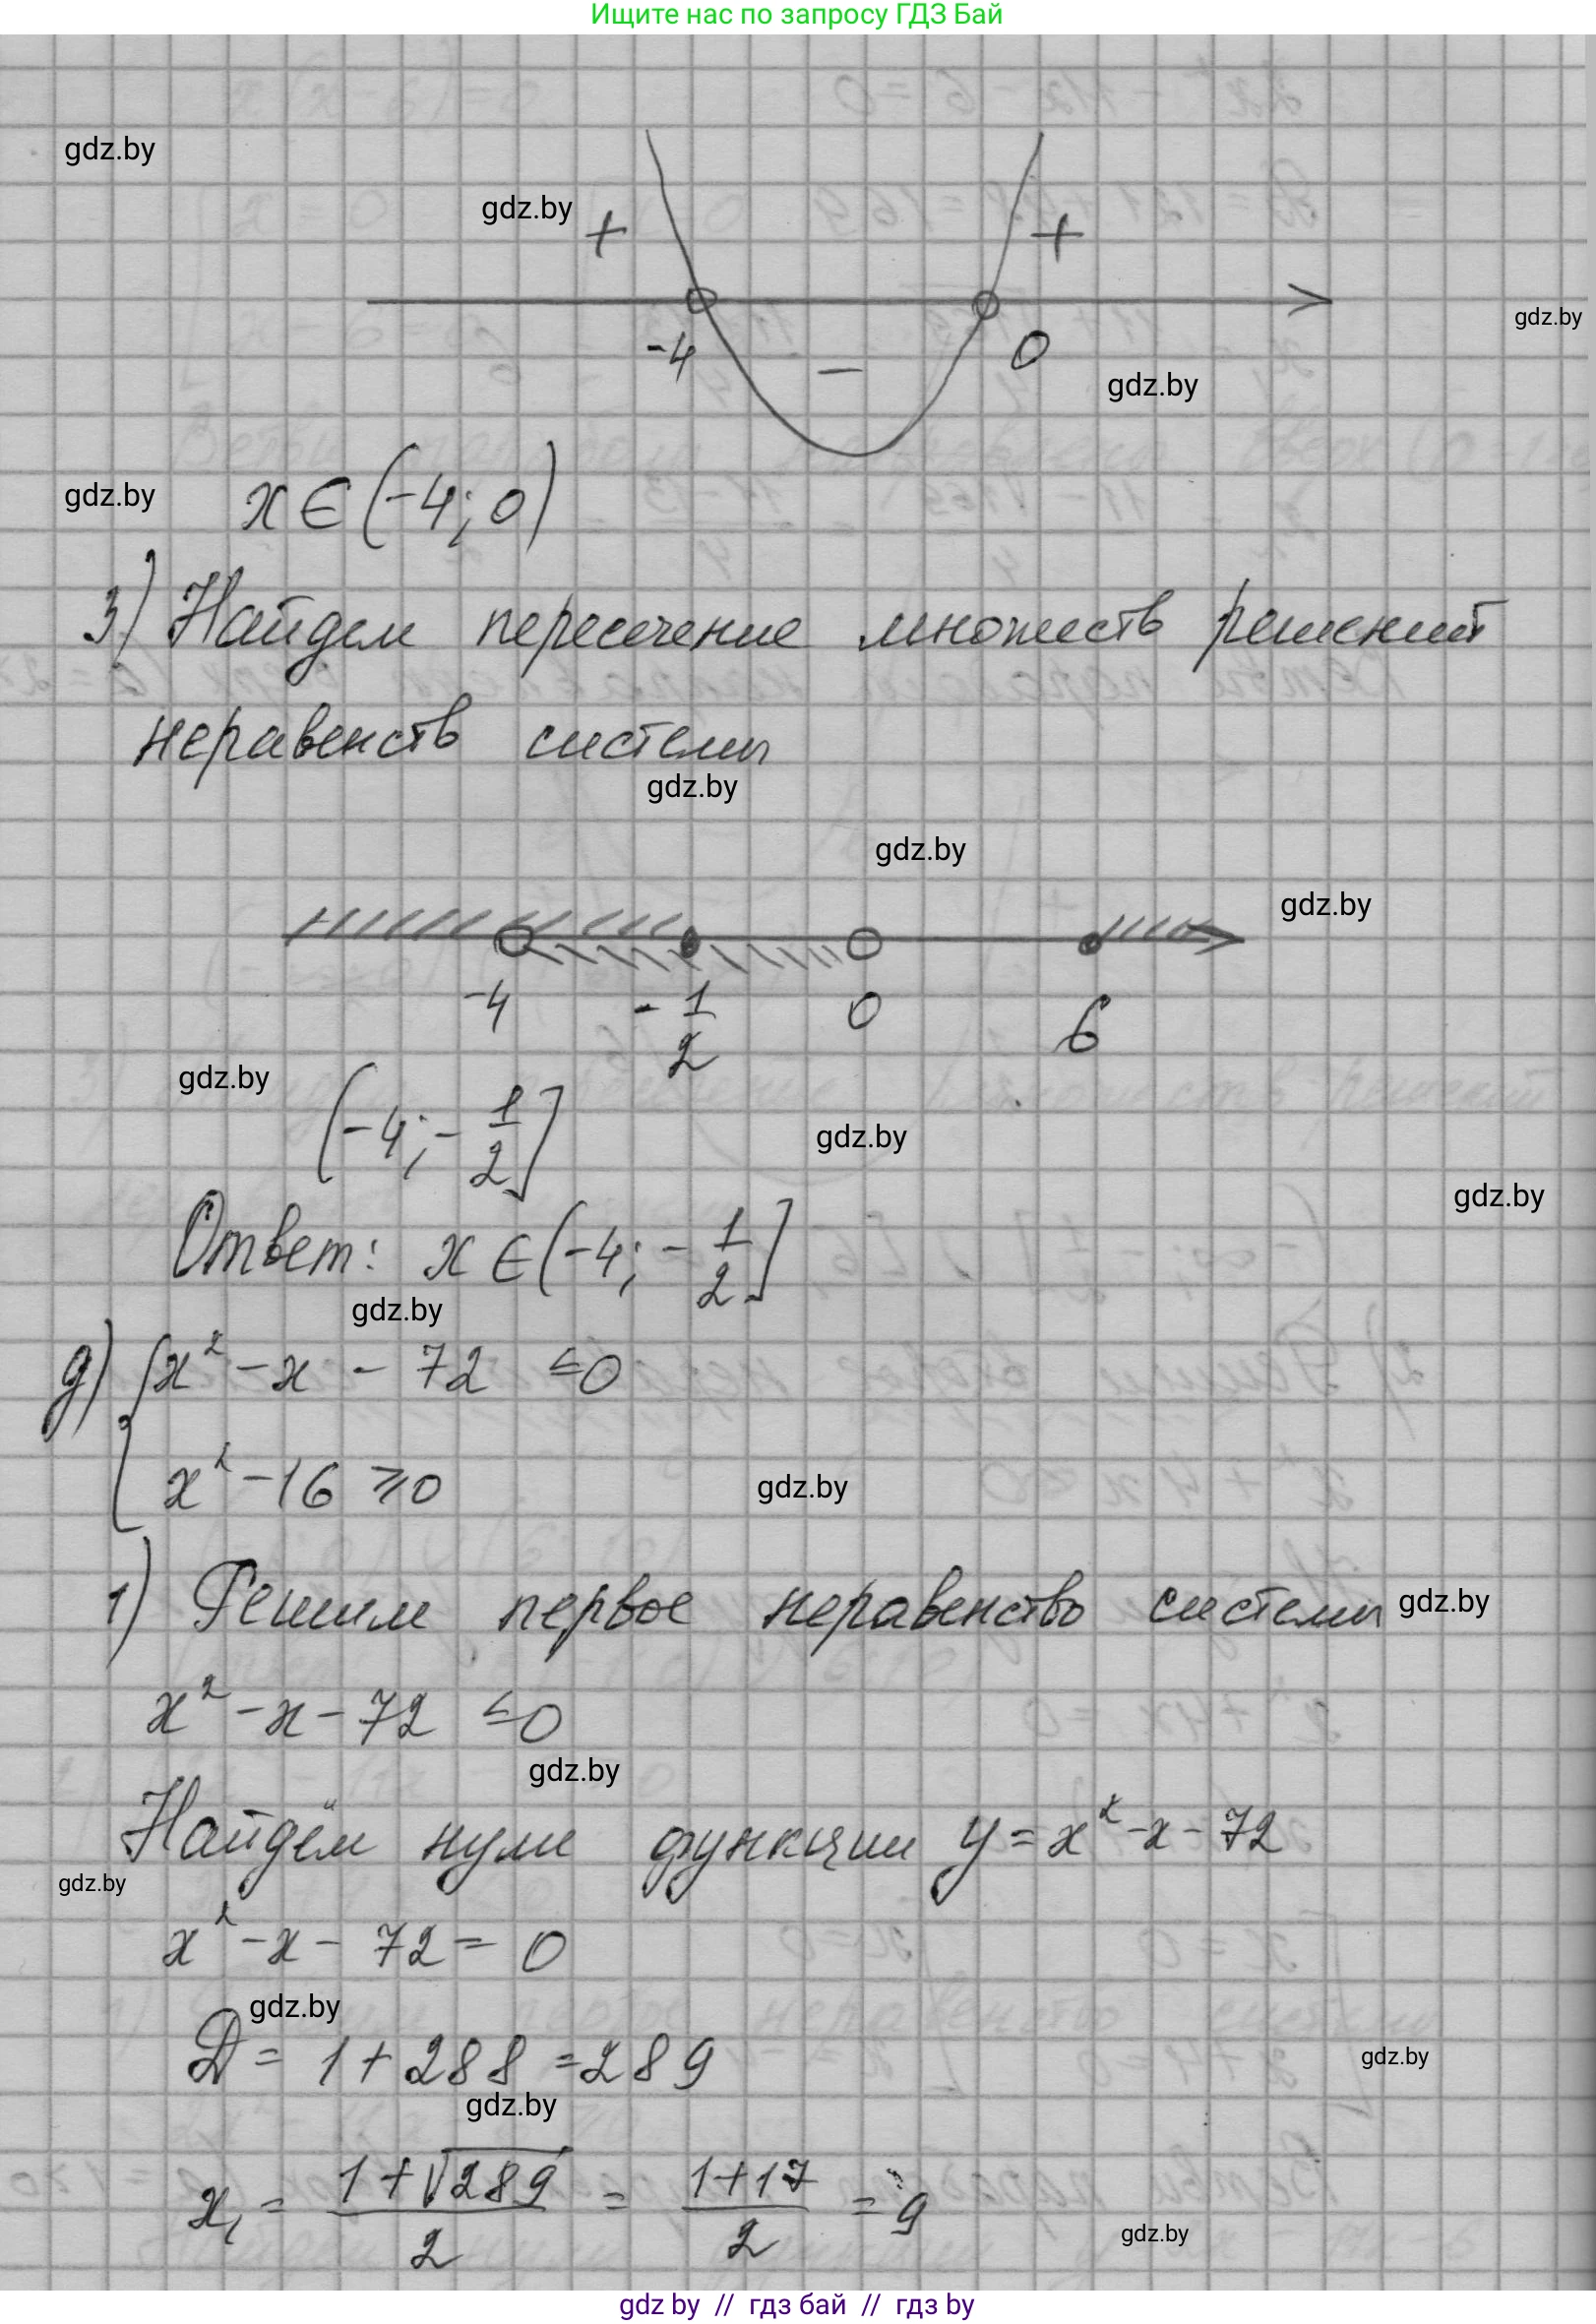 Ищите нас по запросу ГДЗ Бай
gdz.by
gdz.by
+ +
gdz.by
-4 − 0
gdz.by
gdz.by
x ∈ (-4; 0)
3) Найдем пересечение множеств решений
неравенств системы
gdz.by
gdz.by
gdz.by
-4 -1/2 0 6
gdz.by
(-4; -1/2]
gdz.by
gdz.by
Ответ: x ∈ (-4; -1/2]
gdz.by
д) { x² - x - 72 ≤ 0
x² - 16 ≥ 0
gdz.by
1) Решим первое неравенство системы
gdz.by
x² - x - 72 ≤ 0
gdz.by
Найдём нули функции y = x² - x - 72
gdz.by
x² - x - 72 = 0
gdz.by
D = 1 + 288 = 289
gdz.by
gdz.by
x₁ = (1 + √289)/2 = (1 + 17)/2 = 9
gdz.by
gdz by // гдз бай // гдз by